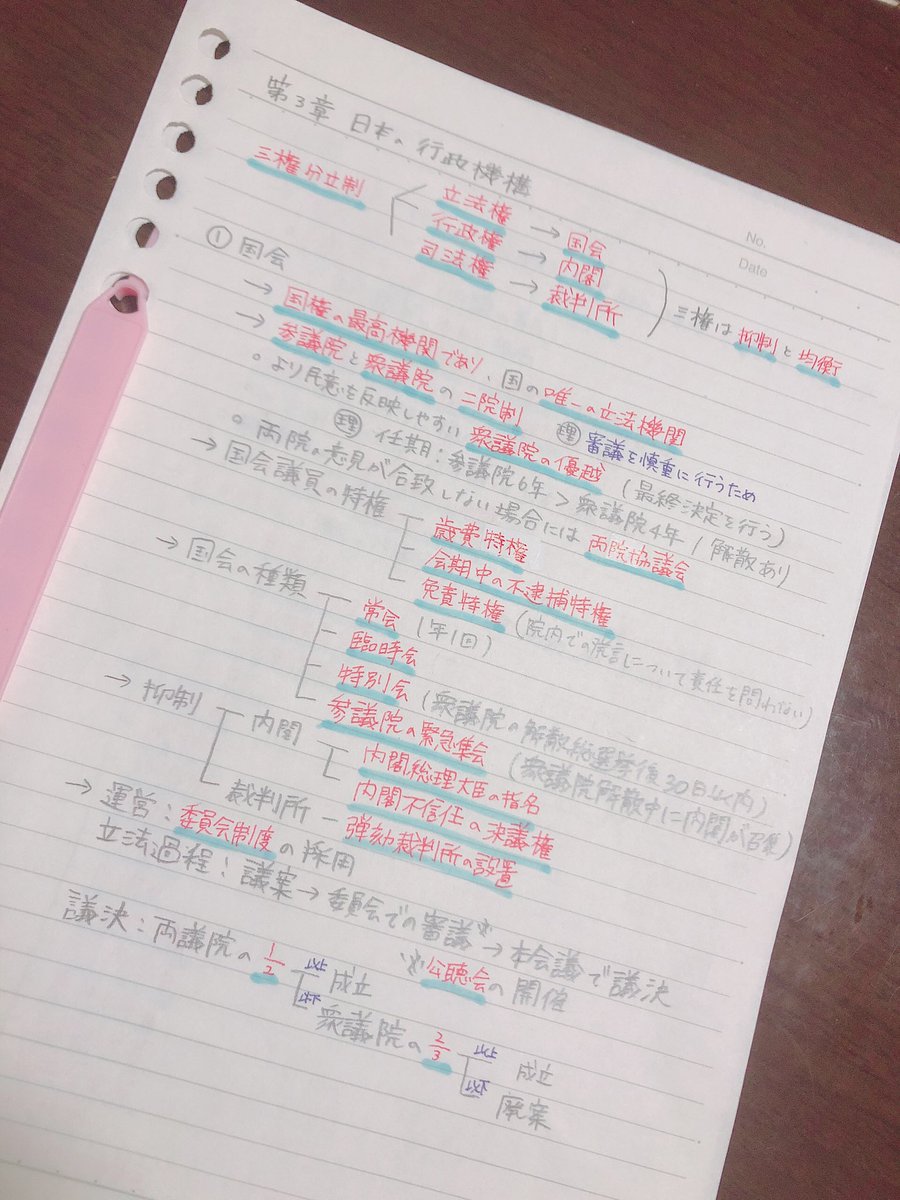 第3章 日本の行政機構
No.
Date
三権分立制
立法権 → 国会
行政権 → 内閣
司法権 → 裁判所
三権は抑制と均衡
① 国会
→ 国権の最高機関であり、国の唯一の立法機関
→ 参議院と衆議院の二院制 理 審議を慎重に行うため
。より民意を反映しやすい衆議院の優越 (最終決定を行う)
理 任期:参議院6年 > 衆議院4年 / 解散あり
。両院の意見が合致しない場合には両院協議会
→ 国会議員の特権
歳費特権
会期中の不逮捕特権
免責特権 (院内での発言について責任を問わない)
→ 国会の種類
常会 (年1回)
臨時会
特別会 (衆議院の解散総選挙後30日以内)
参議院の緊急集会 (衆議院解散中に内閣が召集)
→ 抑制
内閣
内閣総理大臣の指名
内閣不信任の決議権
裁判所 ー 弾劾裁判所の設置
→ 運営:委員会制度の採用
立法過程:議案 → 委員会での審議 → 本会議で議決
公聴会の開催
議決:両議院の1/2 以上 成立
以下 衆議院の2/3 以上 成立
以下 廃案